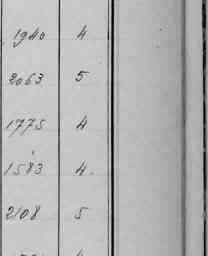 1940 4
2063 5
1775 4
1583 4.
2108 5